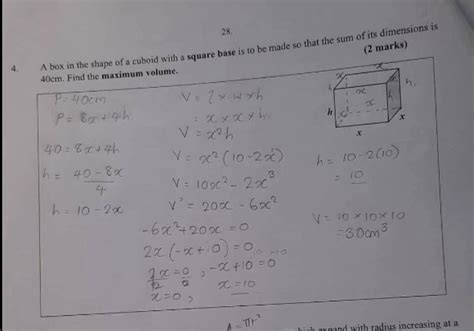 28.
4. A box in the shape of a cuboid with a square base is to be made so that the sum of its dimensions is
40cm. Find the maximum volume. (2 marks)
P = 40cm
P = 8x + 4h
40 = 8x + 4h
h = 40 - 8x
4
h = 10 - 2x
V = l x w x h
= x x x x h
V = x²h
V = x²(10 - 2x)
V = 10x² - 2x³
V' = 20x - 6x²
-6x² + 20x = 0
2x(-x + 10) = 0
2x = 0, -x + 10 = 0
2 2
x = 0, x = 10
x
h
x
h
x
x
h
x
x
x
h = 10 - 2(10)
= 10
V = 10 x 10 x 10
= 30cm³
A = πr²
expand with radius increasing at a